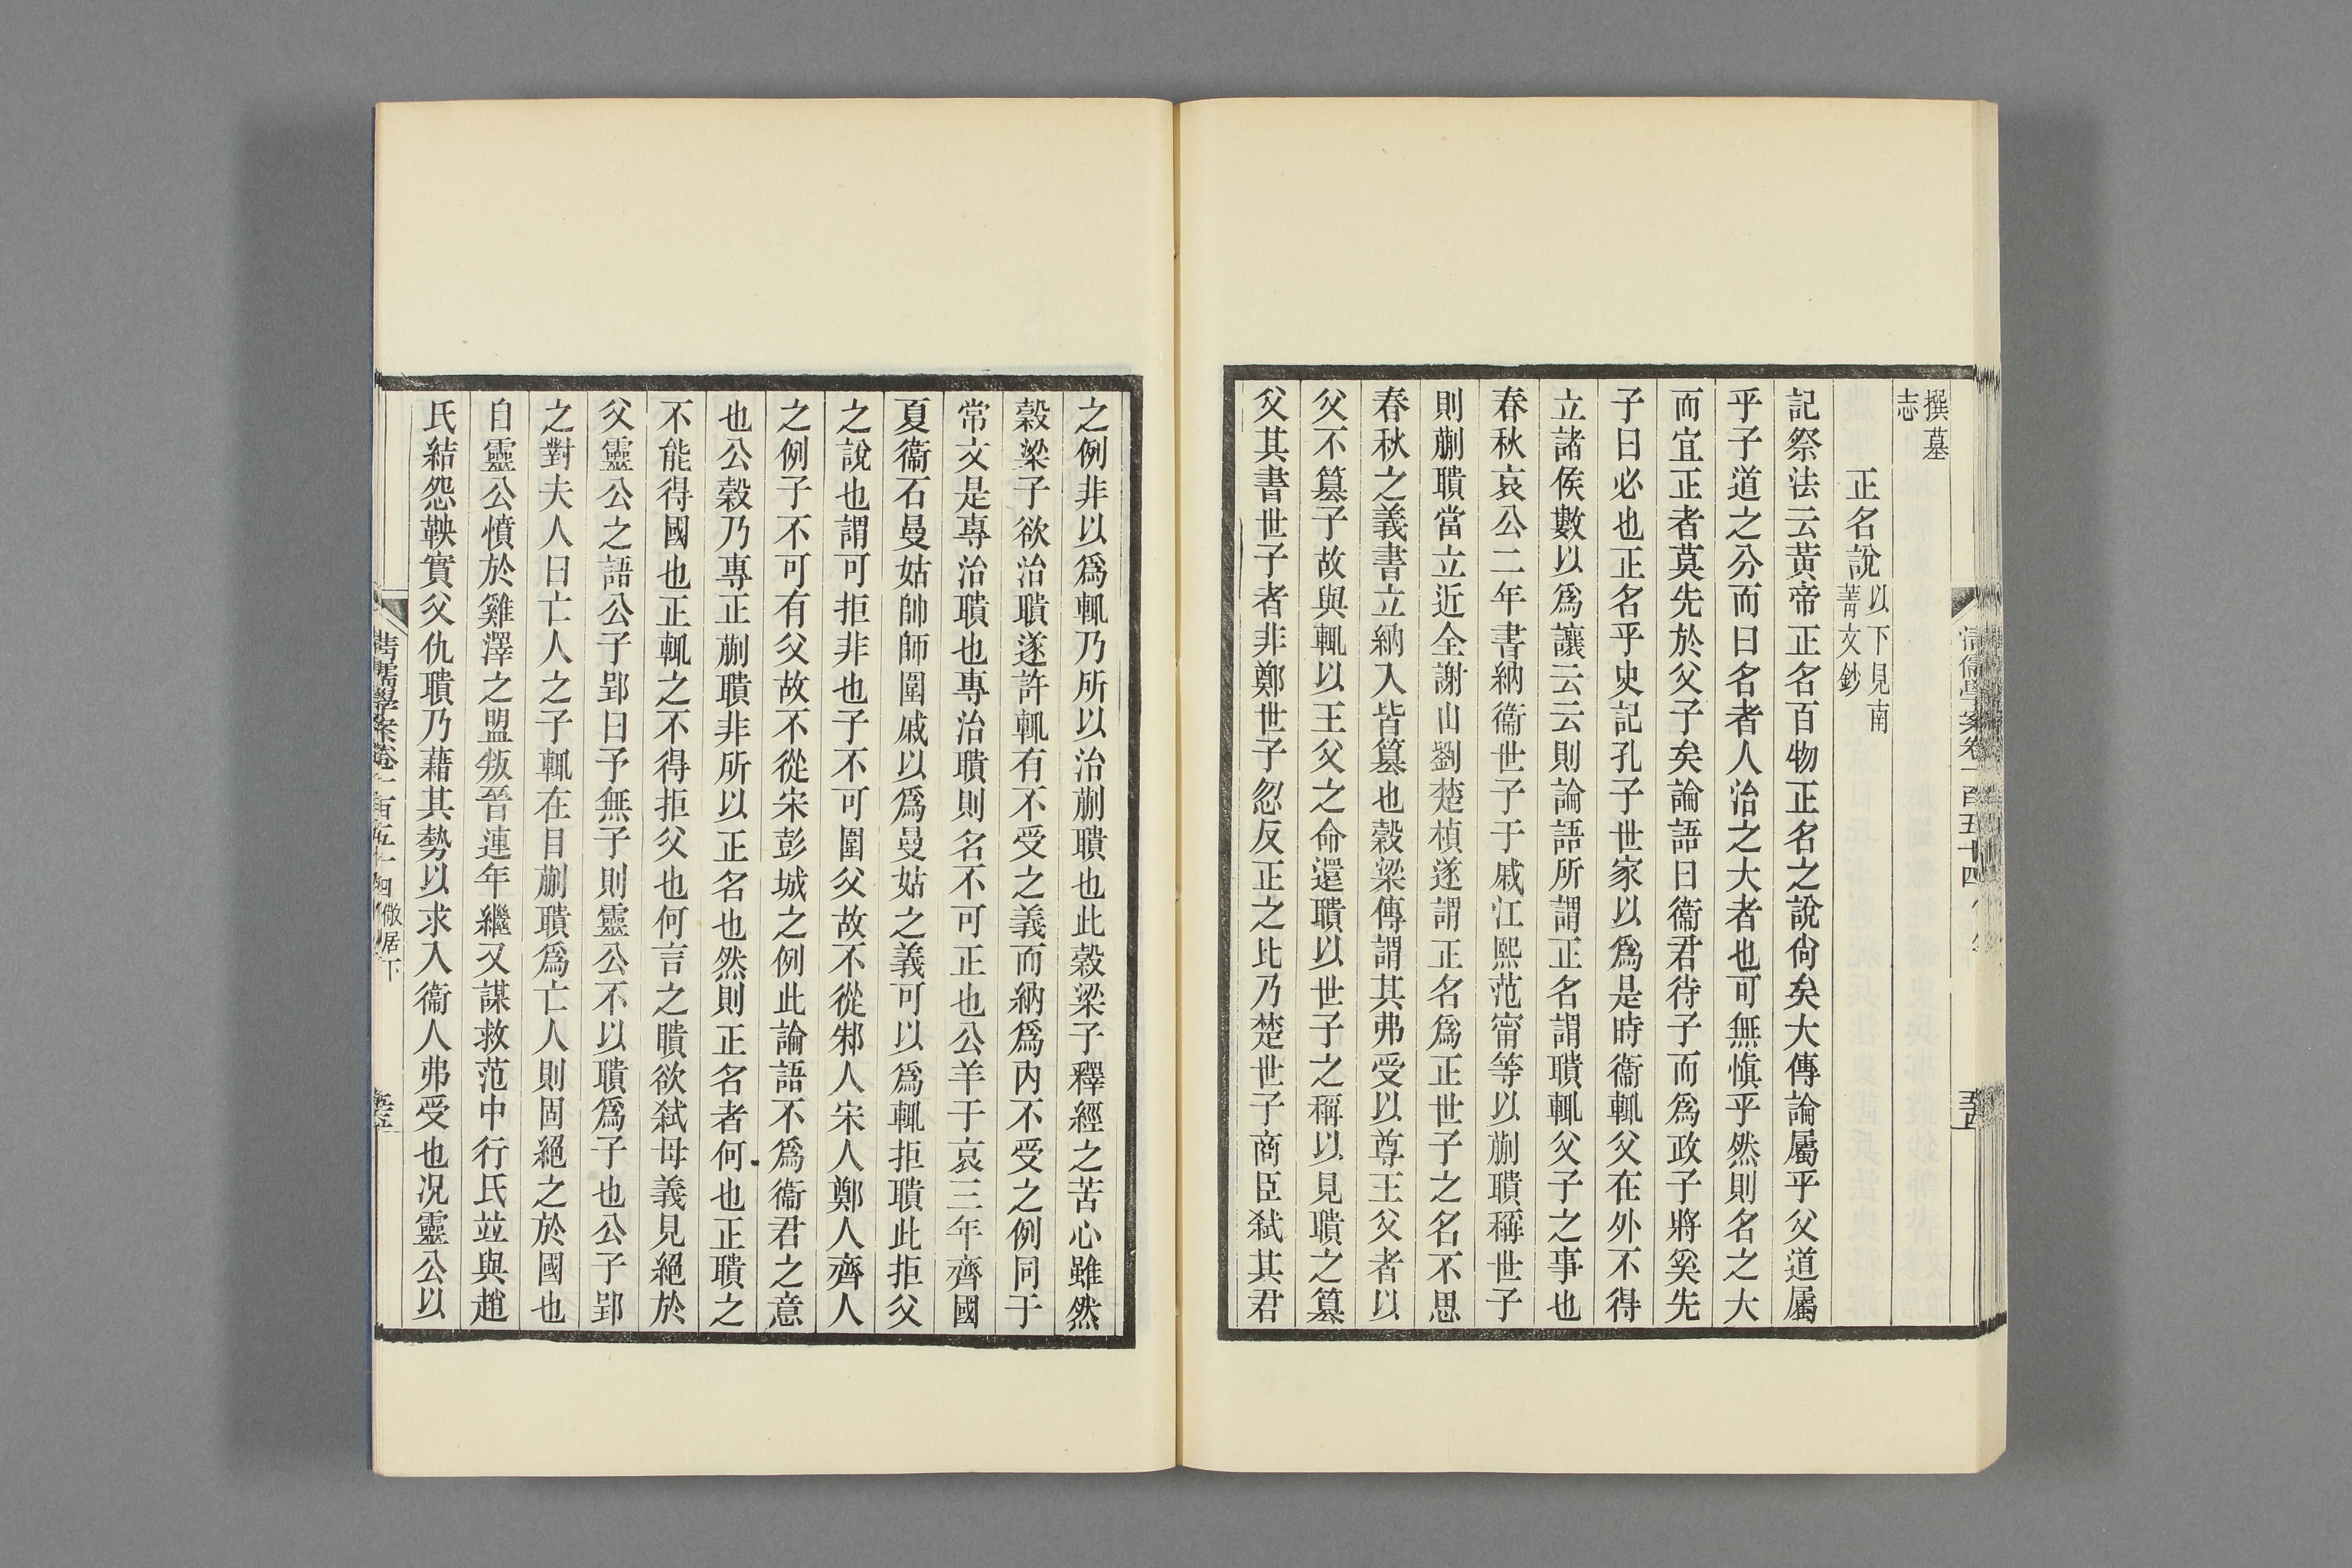 撰墓
志
正名說以下見南
菁文鈔
記祭法云黃帝正名百物正名之說尙矣大傳論屬乎父道屬
乎子道之分而曰名者人治之大者也可無愼乎然則名之大
而宜正者莫先於父子矣論語曰衞君待子而爲政子將奚先
子曰必也正名乎史記孔子世家以爲是時衞輒父在外不得
立諸侯數以爲讓云云則論語所謂正名謂聵輒父子之事也
春秋哀公二年書納衞世子于戚江熙范甯等以蒯聵稱世子
則蒯聵當立近全謝山劉楚楨遂謂正名爲正世子之名不思
春秋之義書立納入皆篡也穀梁傳謂其弗受以尊王父者以
父不篡子故與輒以王父之命還聵以世子之稱以見聵之篡
父其書世子者非鄭世子忽反正之比乃楚世子商臣弑其君
之例非以爲輒乃所以治蒯聵也此穀梁子釋經之苦心雖然
穀梁子欲治聵遂許輒有不受之義而納爲內不受之例同于
常文是專治聵也專治聵則名不可正也公羊于哀三年齊國
夏衞石曼姑帥師圍戚以爲曼姑之義可以爲輒拒聵此拒父
之說也謂可拒非也子不可圍父故不從邾人宋人鄭人齊人
之例子不可有父故不從宋彭城之例此論語不爲衞君之意
也公穀乃專正蒯聵非所以正名也然則正名者何也正聵之
不能得國也正輒之不得拒父也何言之聵欲弑母義見絕於
父靈公之語公子郢曰予無子則靈公不以聵爲子也公子郢
之對夫人曰亡人之子輒在目蒯聵爲亡人則固絕之於國也
自靈公憤於雞澤之盟叛晉連年繼又謀救范中行氏竝與趙
氏結怨鞅實父仇聵乃藉其勢以求入衞人弗受也况靈公以
清儒學案卷一百五十四 儆居下